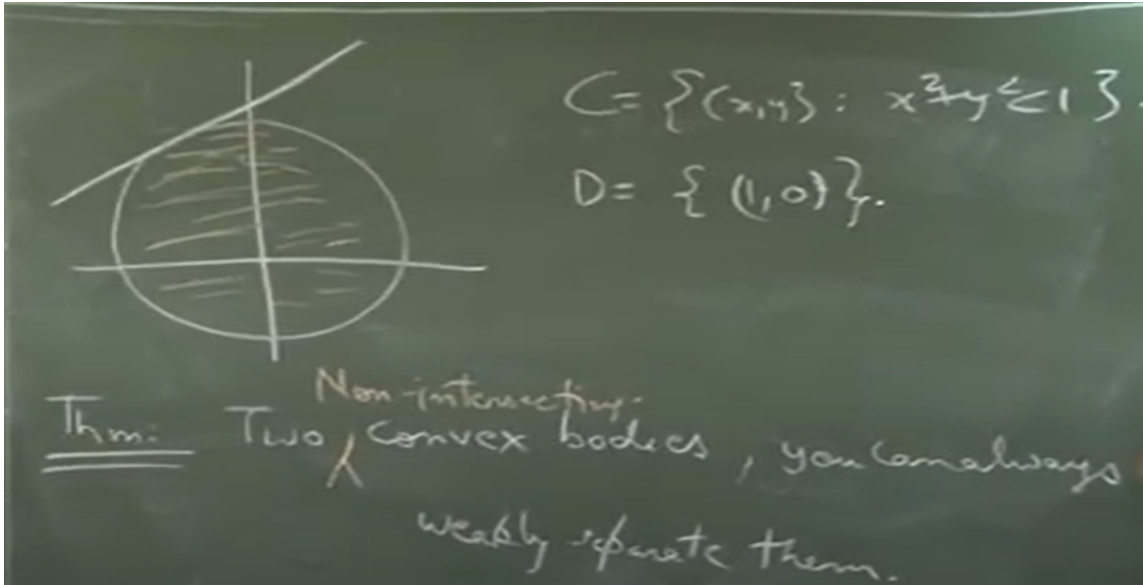 C = {(x,y} : x²+y² < 1}.
D = { (1,0)}.
Non-intersecting.
Thm: Two convex bodies, you can always
weakly separate them.